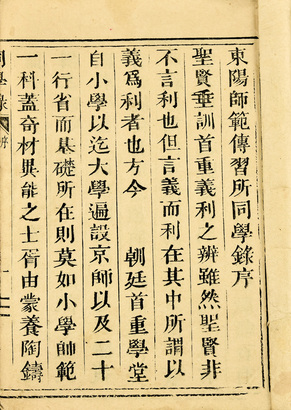 東陽師範傳習所同學錄序
聖賢垂訓首重義利之辨雖然聖賢非
不言利也但言義而利在其中所謂以
義爲利者也方今　朝廷首重學堂
自小學以迄大學遍設京師以及二十
一行省而基礎所在則莫如小學師範
一科蓋奇材異能之士胥由蒙養陶鑄